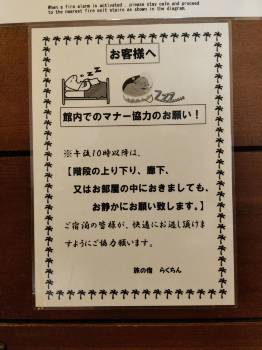 When a fire alarm is activated , please stay calm and proceed
to the nearest fire exit stairs as shown in the diagram.
お客様へ
zzz
zzz
館内でのマナー協力のお願い！
※午後10時以降は、
【階段の上り下り、廊下、
又はお部屋の中におきましても、
お静かにお願い致します。】
ご宿泊の皆様が、快適にお過し頂けま
すようにご協力願います。
旅の宿 らくらん